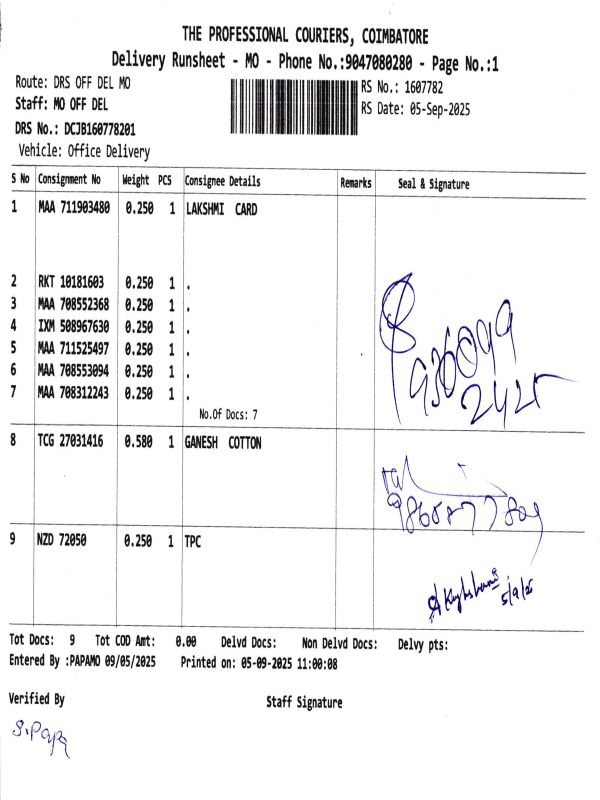 THE PROFESSIONAL COURIERS, COIMBATORE
Delivery Runsheet - MO - Phone No.:9047080280 - Page No.:1
Route: DRS OFF DEL MO
RS No.: 1607782
Staff: MO OFF DEL
RS Date: 05-Sep-2025
DRS No.: DCJB160778201
Vehicle: Office Delivery
S No Consignment No Weight PCS Consignee Details Remarks Seal & Signature
1 MAA 711903480 0.250 1 LAKSHMI CARD
2 RKT 10181603 0.250 1 .
3 MAA 708552368 0.250 1 .
4 IXM 508967630 0.250 1 .
5 MAA 711525497 0.250 1 .
6 MAA 708553094 0.250 1 .
7 MAA 708312243 0.250 1 .
936099
2425
No.Of Docs: 7
8 TCG 27031416 0.580 1 GANESH COTTON
9 NZD 72050 0.250 1 TPC
5/9/25
Tot Docs: 9 Tot COD Amt: 0.00 Delvd Docs: Non Delvd Docs: Delvy pts:
Entered By :PAPAMO 09/05/2025 Printed on: 05-09-2025 11:00:08
Verified By Staff Signature
S.Papa